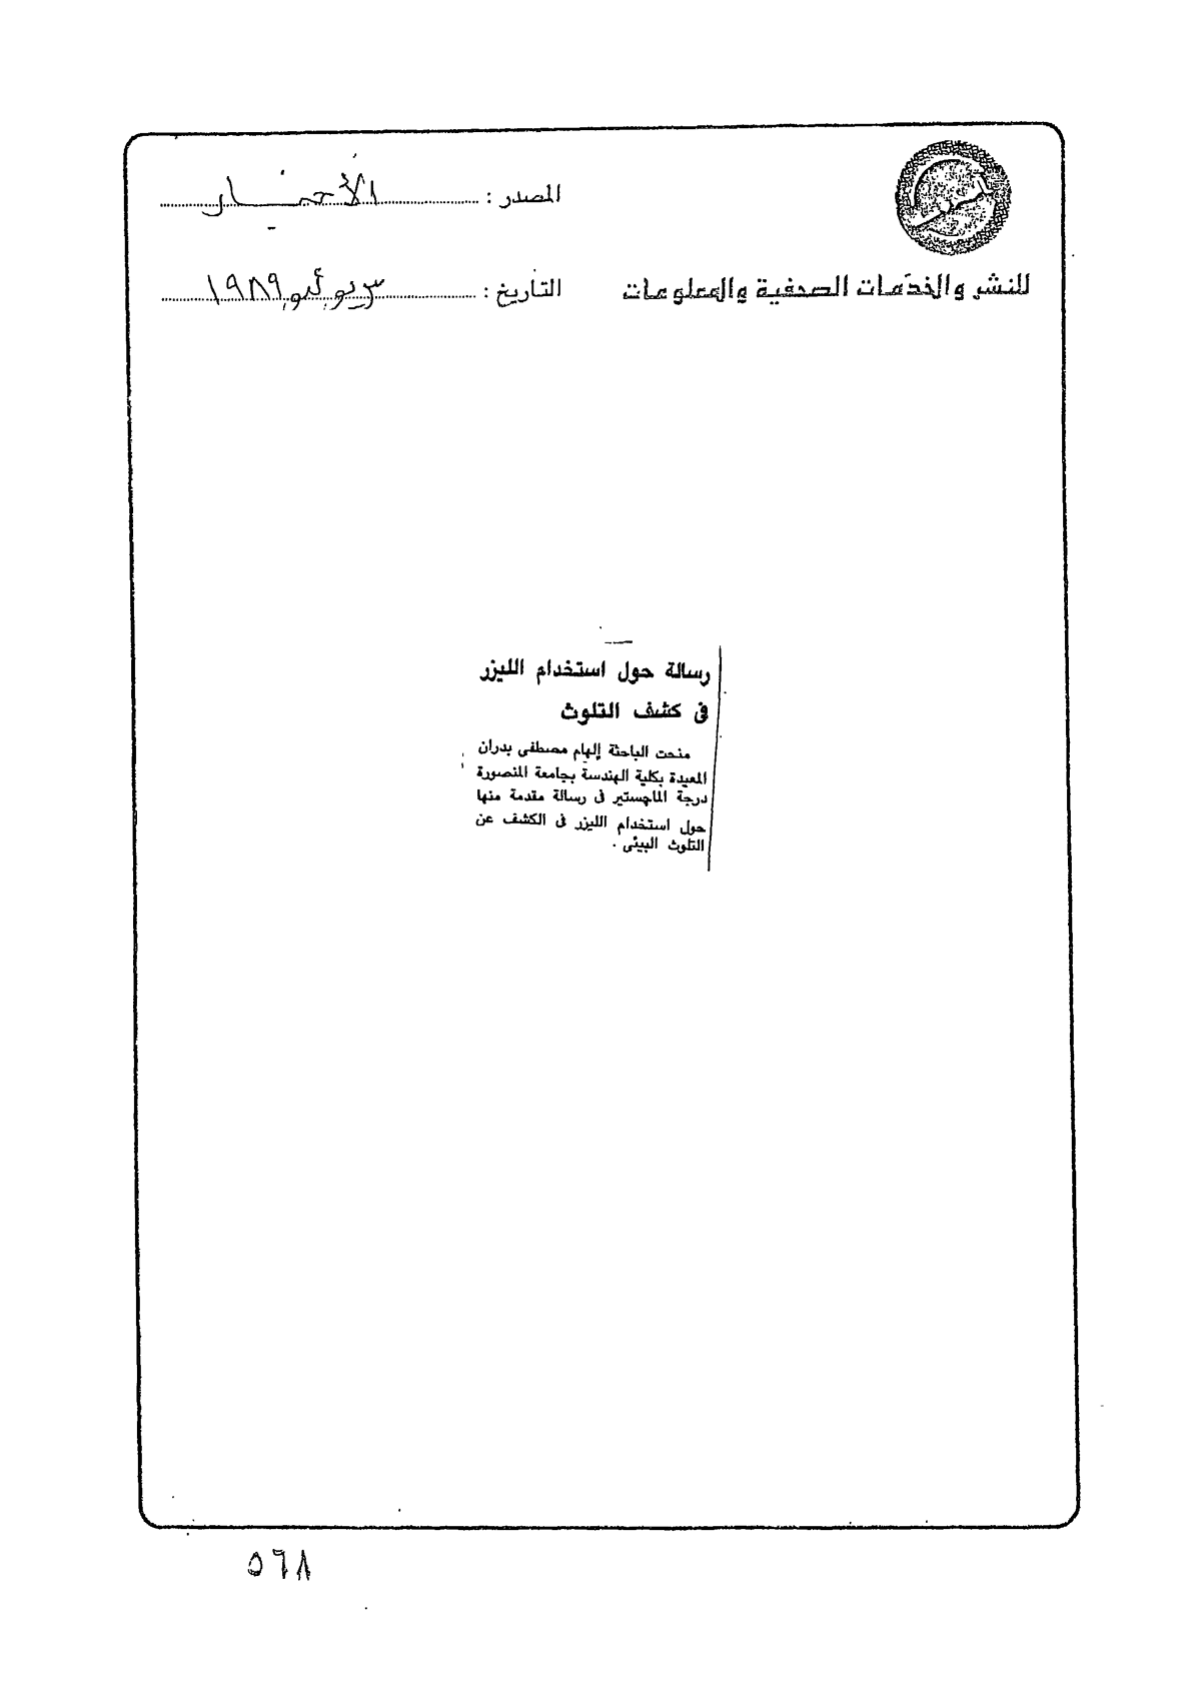 المصدر : الأخبار
للنشر والخدمات الصحفية والمعلومات
التاريخ : ٣ يوليو ١٩٨٩
رسالة حول استخدام الليزر
فى كشف التلوث
منحت الباحثة إلهام مصطفى بدران
المعيدة بكلية الهندسة بجامعة المنصورة
درجة الماجستير فى رسالة مقدمة منها
حول استخدام الليزر فى الكشف عن
التلوث البيئى .
٥٦٨